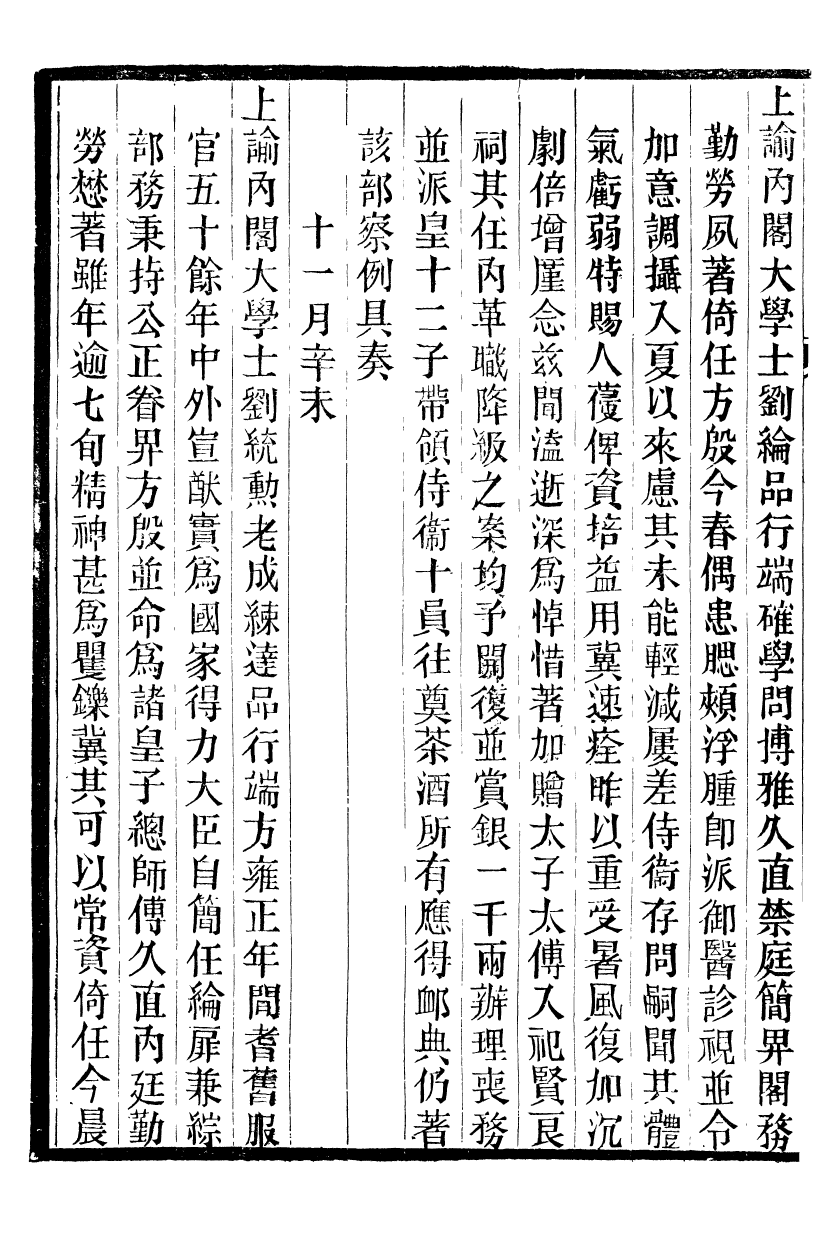 上諭內閣大學士劉綸品行端確學問博雅久直禁庭簡畀閣務
勤勞夙著倚任方殷今春偶患腮頰浮腫卽派御醫診視並令
加意調攝入夏以來慮其未能輕減屢差侍衞存問嗣聞其體
氣虧弱特賜人葠俾資培益用冀速痊昨以重受暑風復加沉
劇倍增廑念玆聞溘逝深爲悼惜著加贈太子太傅入祀賢良
祠其任內革職降級之案均予開復並賞銀一千兩辦理喪務
並派皇十二子帶領侍衞十員往奠茶酒所有應得卹典仍著
該部察例具奏
十一月辛未
上諭內閣大學士劉統勲老成練達品行端方雍正年閒耆舊服
官五十餘年中外宣猷實爲國家得力大臣自簡任綸扉兼綜
部務秉持公正眷畀方殷並命爲諸皇子總師傅久直內廷勤
勞懋著雖年逾七旬精神甚爲矍鑠冀其可以常資倚任今晨